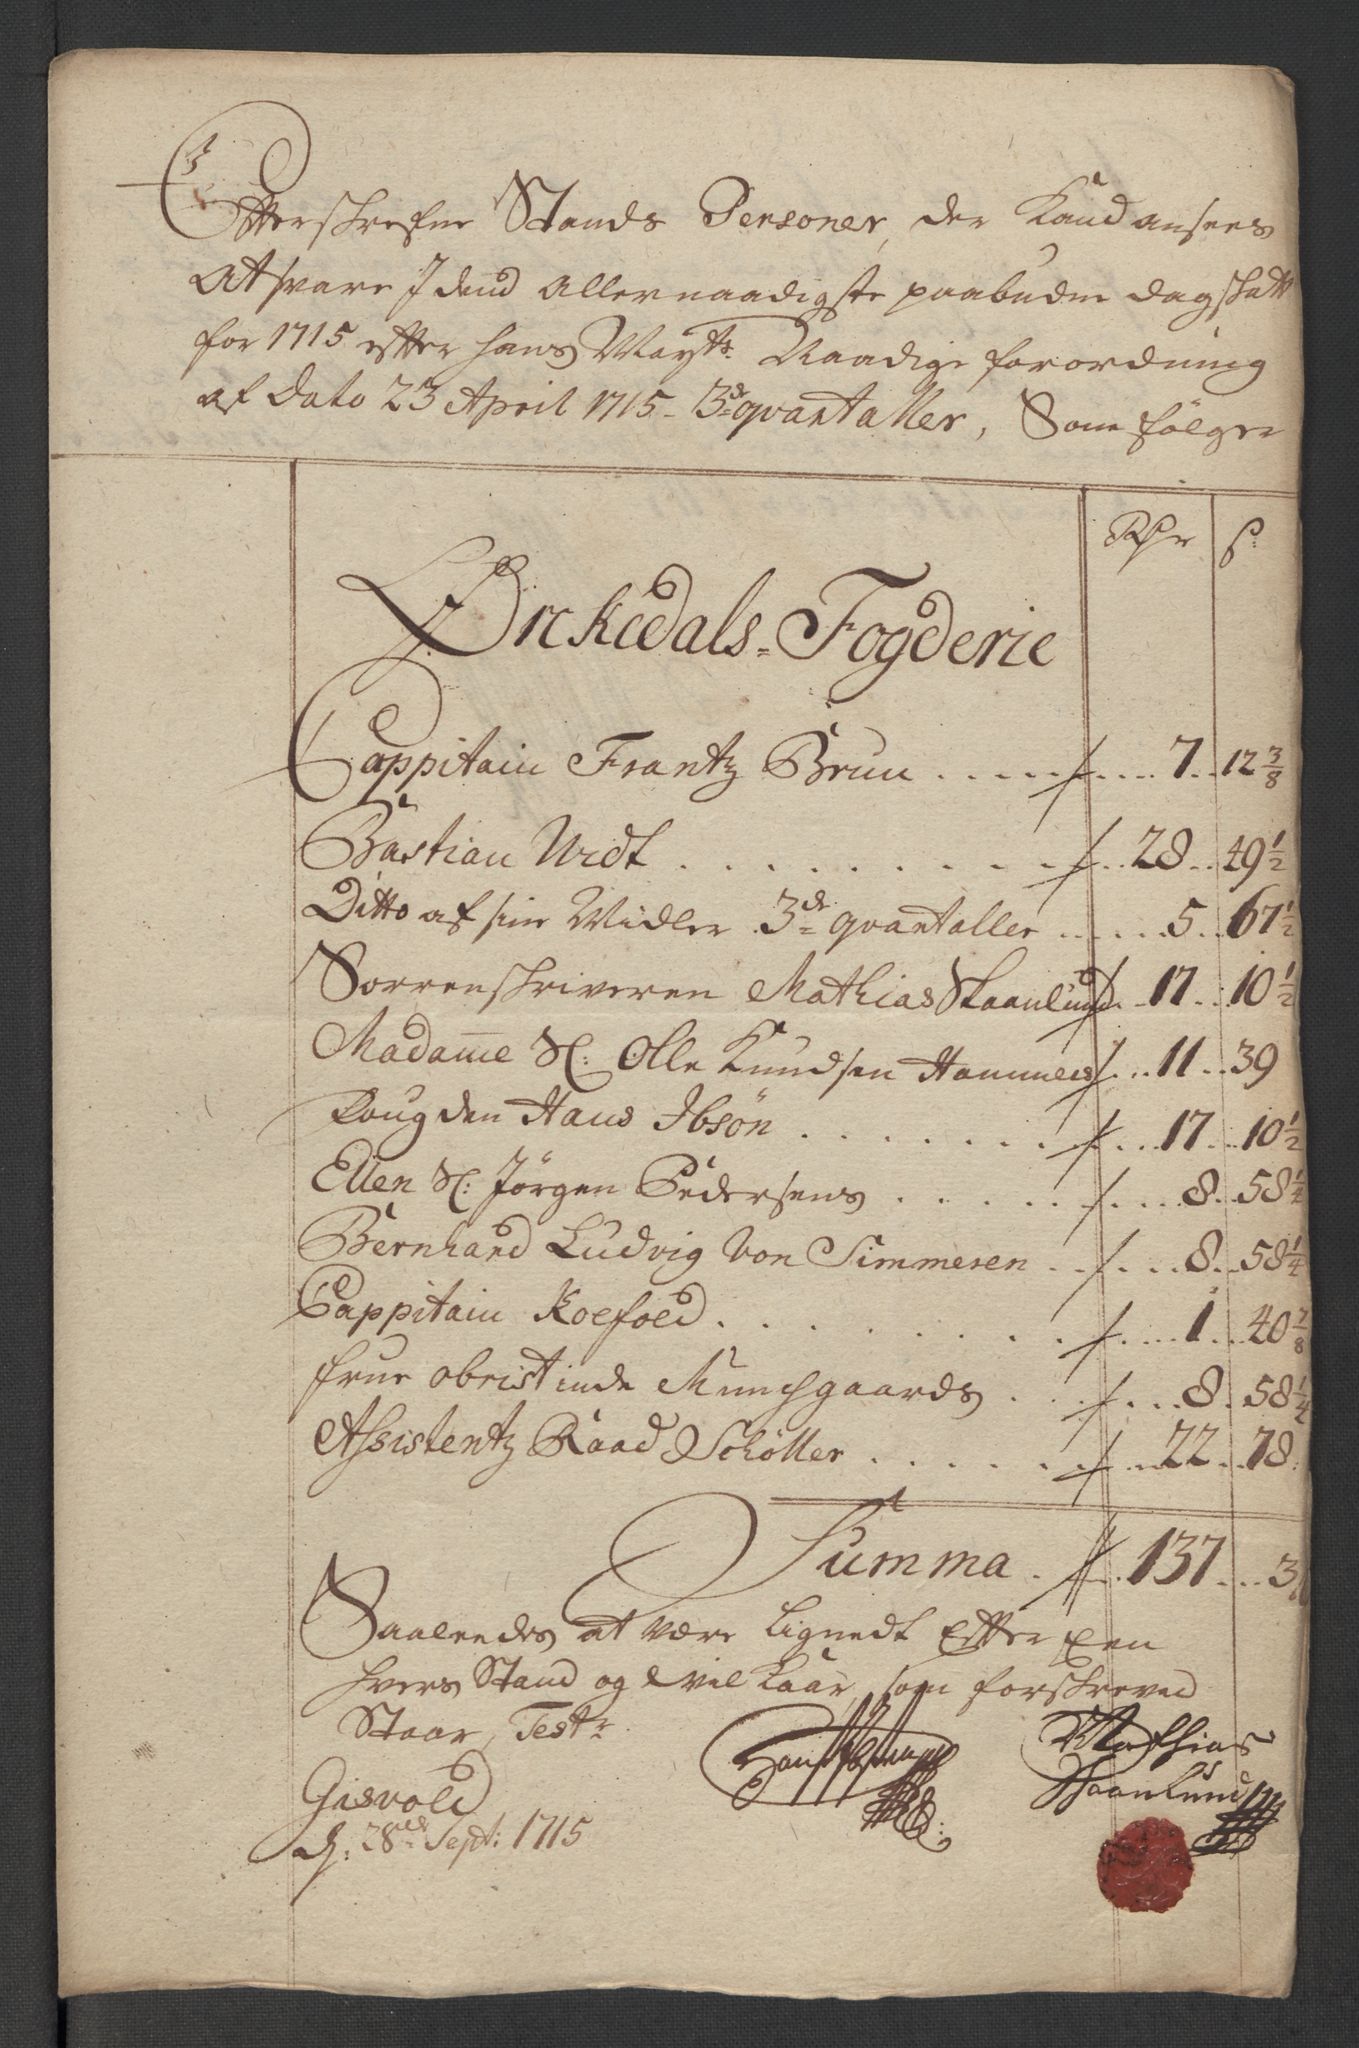 Efterskrefne Stands Personer, der Kand ansees
At svare J dend Allernaadigste paabudne dagskatt
for 1715 efter hans Maysts Naadige forordning
af Dato 23 April 1715 - 3de qvartaller, Som følger
Rdr ß
Ørckedals-Fogderie
Cappitain Frantz Brun 7 12 3/8
Bastian Widt 28 49 1/2
Ditto af sine Midler 3de qvartaller 5 67 1/2
Sorrenskriveren Mathias Skaanlund 17 10 1/2
Madame Sl: Olle Knudsen Hammers 11 39
Fougden Hans Ibsøn 17 10 1/2
Ellen Sl: Jørgen Pedersens 8 58 1/4
Bernhard Ludvig von Simmeren 8 58 1/4
Cappitain Koefoed 1 40 7/8
frue obristinde Munchgaards 8 58 1/4
Assistentz Raad Schøller 22 78
Summa 137 3
Saaleedes at være Lignedt Efter Een
hvers Stand og vilkaar, som forskreved
Staar, Test:
Mathias
Skaanlund
Gisvold
d: 28de Sept: 1715